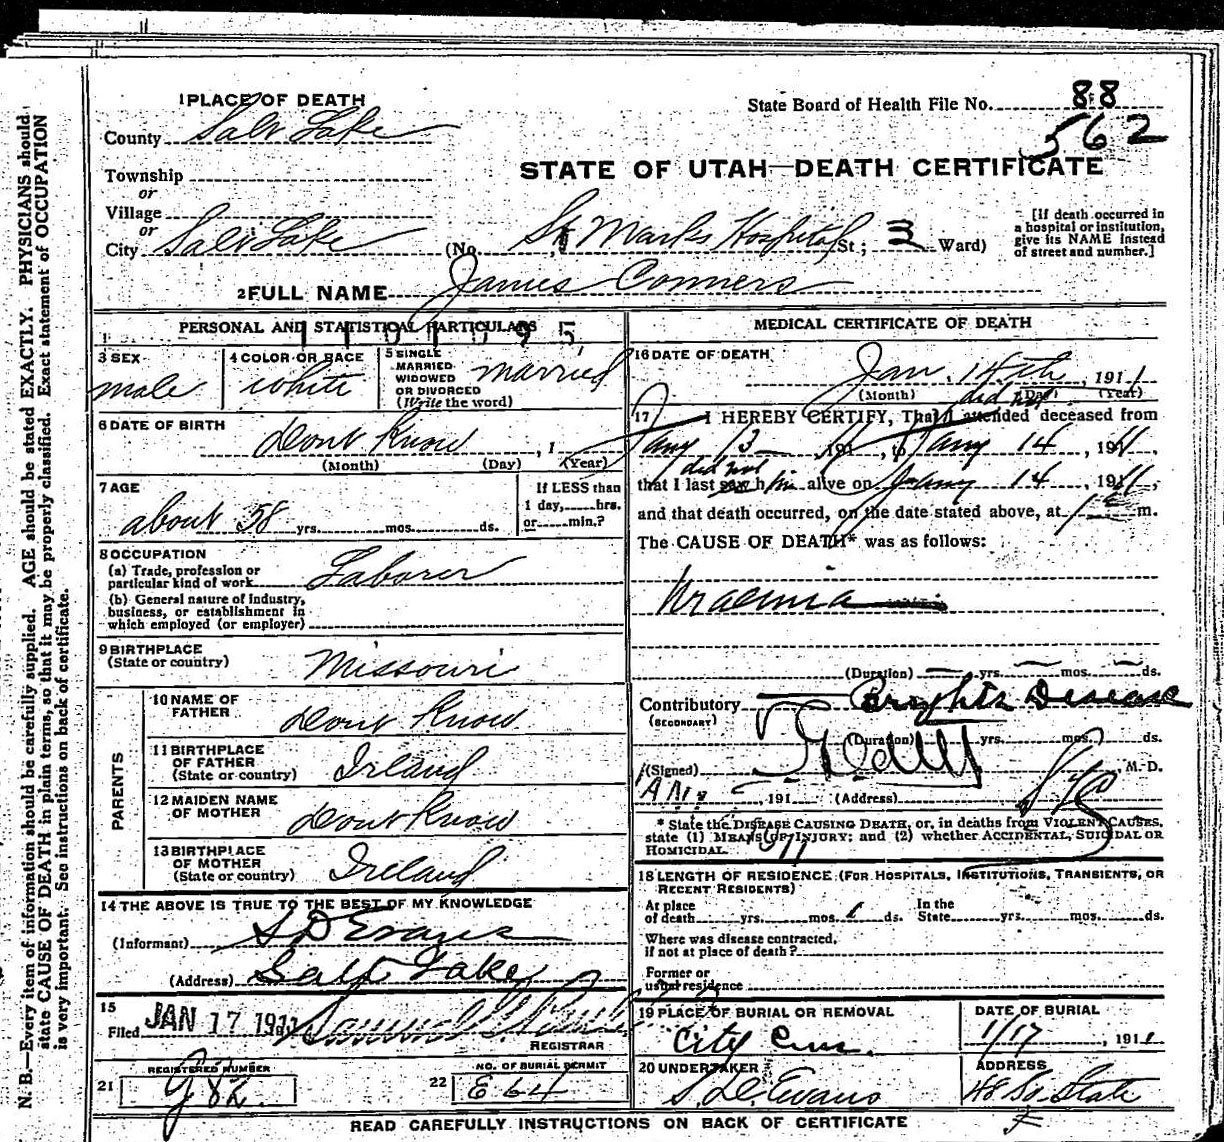 N. B.—Every item of information should be carefully supplied. AGE should be stated EXACTLY. PHYSICIANS should
state CAUSE OF DEATH in plain terms, so that it may be properly classified. Exact statement of OCCUPATION
is very important. See instructions on back of certificate.
1 PLACE OF DEATH
State Board of Health File No. 88
562
County Salt Lake
STATE OF UTAH—DEATH CERTIFICATE
Township
or
Village
or
City Salt Lake (No. St Marks Hospital St.; 3 Ward)
[If death occurred in
a hospital or institution,
give its NAME instead
of street and number.]
2 FULL NAME James Conners
PERSONAL AND STATISTICAL PARTICULARS
1101095
3 SEX
male
4 COLOR OR RACE
white
5 SINGLE
MARRIED
WIDOWED
OR DIVORCED
(Write the word)
married
6 DATE OF BIRTH
Dont Know, 1
(Month) (Day) (Year)
7 AGE
about 58 yrs. mos. ds.
If LESS than
1 day, hrs.
or min.?
8 OCCUPATION
(a) Trade, profession or
particular kind of work Laborer
(b) General nature of industry,
business, or establishment in
which employed (or employer)
9 BIRTHPLACE
(State or country) Missouri
PARENTS
10 NAME OF
FATHER Dont Know
11 BIRTHPLACE
OF FATHER
(State or country) Irland
12 MAIDEN NAME
OF MOTHER Dont Know
13 BIRTHPLACE
OF MOTHER
(State or country) Ireland
14 THE ABOVE IS TRUE TO THE BEST OF MY KNOWLEDGE
(Informant) S D Evans
(Address) Salt Lake
15
Filed JAN 17 1911
REGISTRAR
21 REGISTERED NUMBER
J 82.
22 NO. OF BURIAL PERMIT
E 64
MEDICAL CERTIFICATE OF DEATH
16 DATE OF DEATH
Jan. 14th, 1911
(Month) (Day) (Year)
did not
17 I HEREBY CERTIFY, That I attended deceased from
Jany 13 191, to Jany 14, 1911,
did not
that I last saw him alive on Jany 14, 1911,
and that death occurred, on the date stated above, at 1 m.
The CAUSE OF DEATH* was as follows:
Uraemia
(Duration) yrs. mos. ds.
Contributory Brights Disease
(SECONDARY)
(Duration) yrs. mos. ds.
(Signed) M. D.
191 (Address)
* State the DISEASE CAUSING DEATH, or, in deaths from VIOLENT CAUSES,
state (1) MEANS OF INJURY; and (2) whether ACCIDENTAL, SUICIDAL OR
HOMICIDAL.
18 LENGTH OF RESIDENCE (FOR HOSPITALS, INSTITUTIONS, TRANSIENTS, OR
RECENT RESIDENTS)
At place
of death yrs. mos. 1 ds.
In the
State yrs. mos. ds.
Where was disease contracted,
if not at place of death?
Former or
usual residence
19 PLACE OF BURIAL OR REMOVAL
City Cem.
DATE OF BURIAL
1/17, 1911
20 UNDERTAKER
S. D. Evans
ADDRESS
48 So. State
READ CAREFULLY INSTRUCTIONS ON BACK OF CERTIFICATE